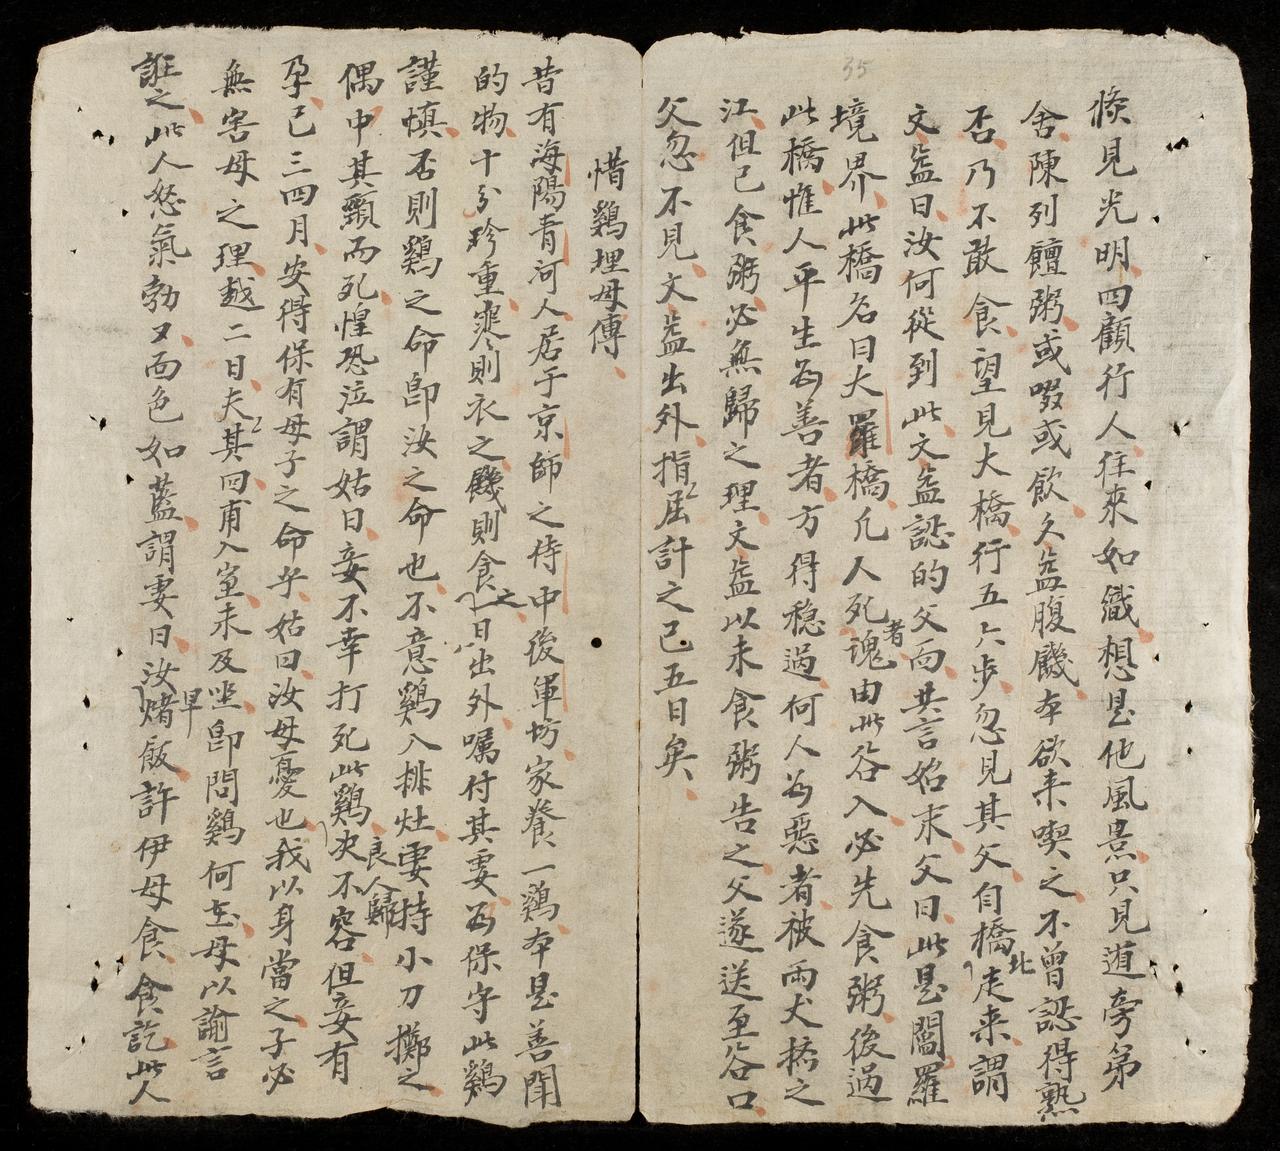 35
倐見光明四顧行人往來如織想是他風景只見道旁第
舍陳列饘粥或啜或飮文盆腹饑本欲来喫之不曾認得熟
否乃不敢食望見大橋行五六步忽見其父自橋北走来謂
文盆曰汝何從到此文盆認的父而共言始末父曰此是閻羅
境界此橋名曰大羅橋凡人死魂者由此谷入必先食粥後過
此橋惟人平生為善者方得穏過何人為惡者被両犬搽之
江但已食粥必無歸之理文盆以未食粥告之父遂送至谷口
父忽不見文盆出外指屈計之已五日矣
惜鷄埋母傳
昔有海陽青河人居于京師之侍中後軍坊家養一鷄本是善聞
的物十分珍重寒則衣之饑則食之一日出外嘱付其妻為保守此鷄
謹慎否則鷄之命即汝之命也不意鷄入排灶妻持小刀擲之
偶中其頸而死惶恐泣謂姑曰妾不幸打死此鷄良人歸决不容但妾有
孕已三四月安得保有母子之命乎姑曰汝毋憂也我以身當之子必
無害母之理越二日夫其回甫入室未及坐即問鷄何在母以諭言
誑之此人怒氣勃々面色如藍謂妻曰汝早煮飯許伊母食食訖此人